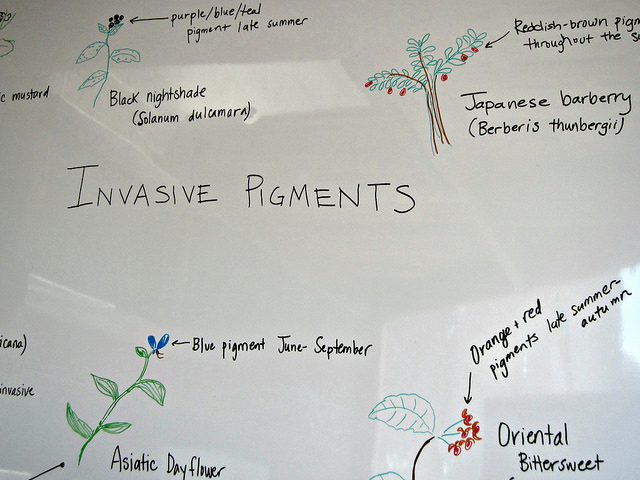 purple/blue/teal
pigment late summer
Reddish-brown
throughout the
c mustard
Black nightshade
(Solanum dulcamara)
Japanese barberry
(Berberis thunbergii)
INVASIVE PIGMENTS
Orange + red
pigments late summer-
autumn
icana)
Blue pigment June-September
invasive
Asiatic Dayflower
Oriental
Bittersweet